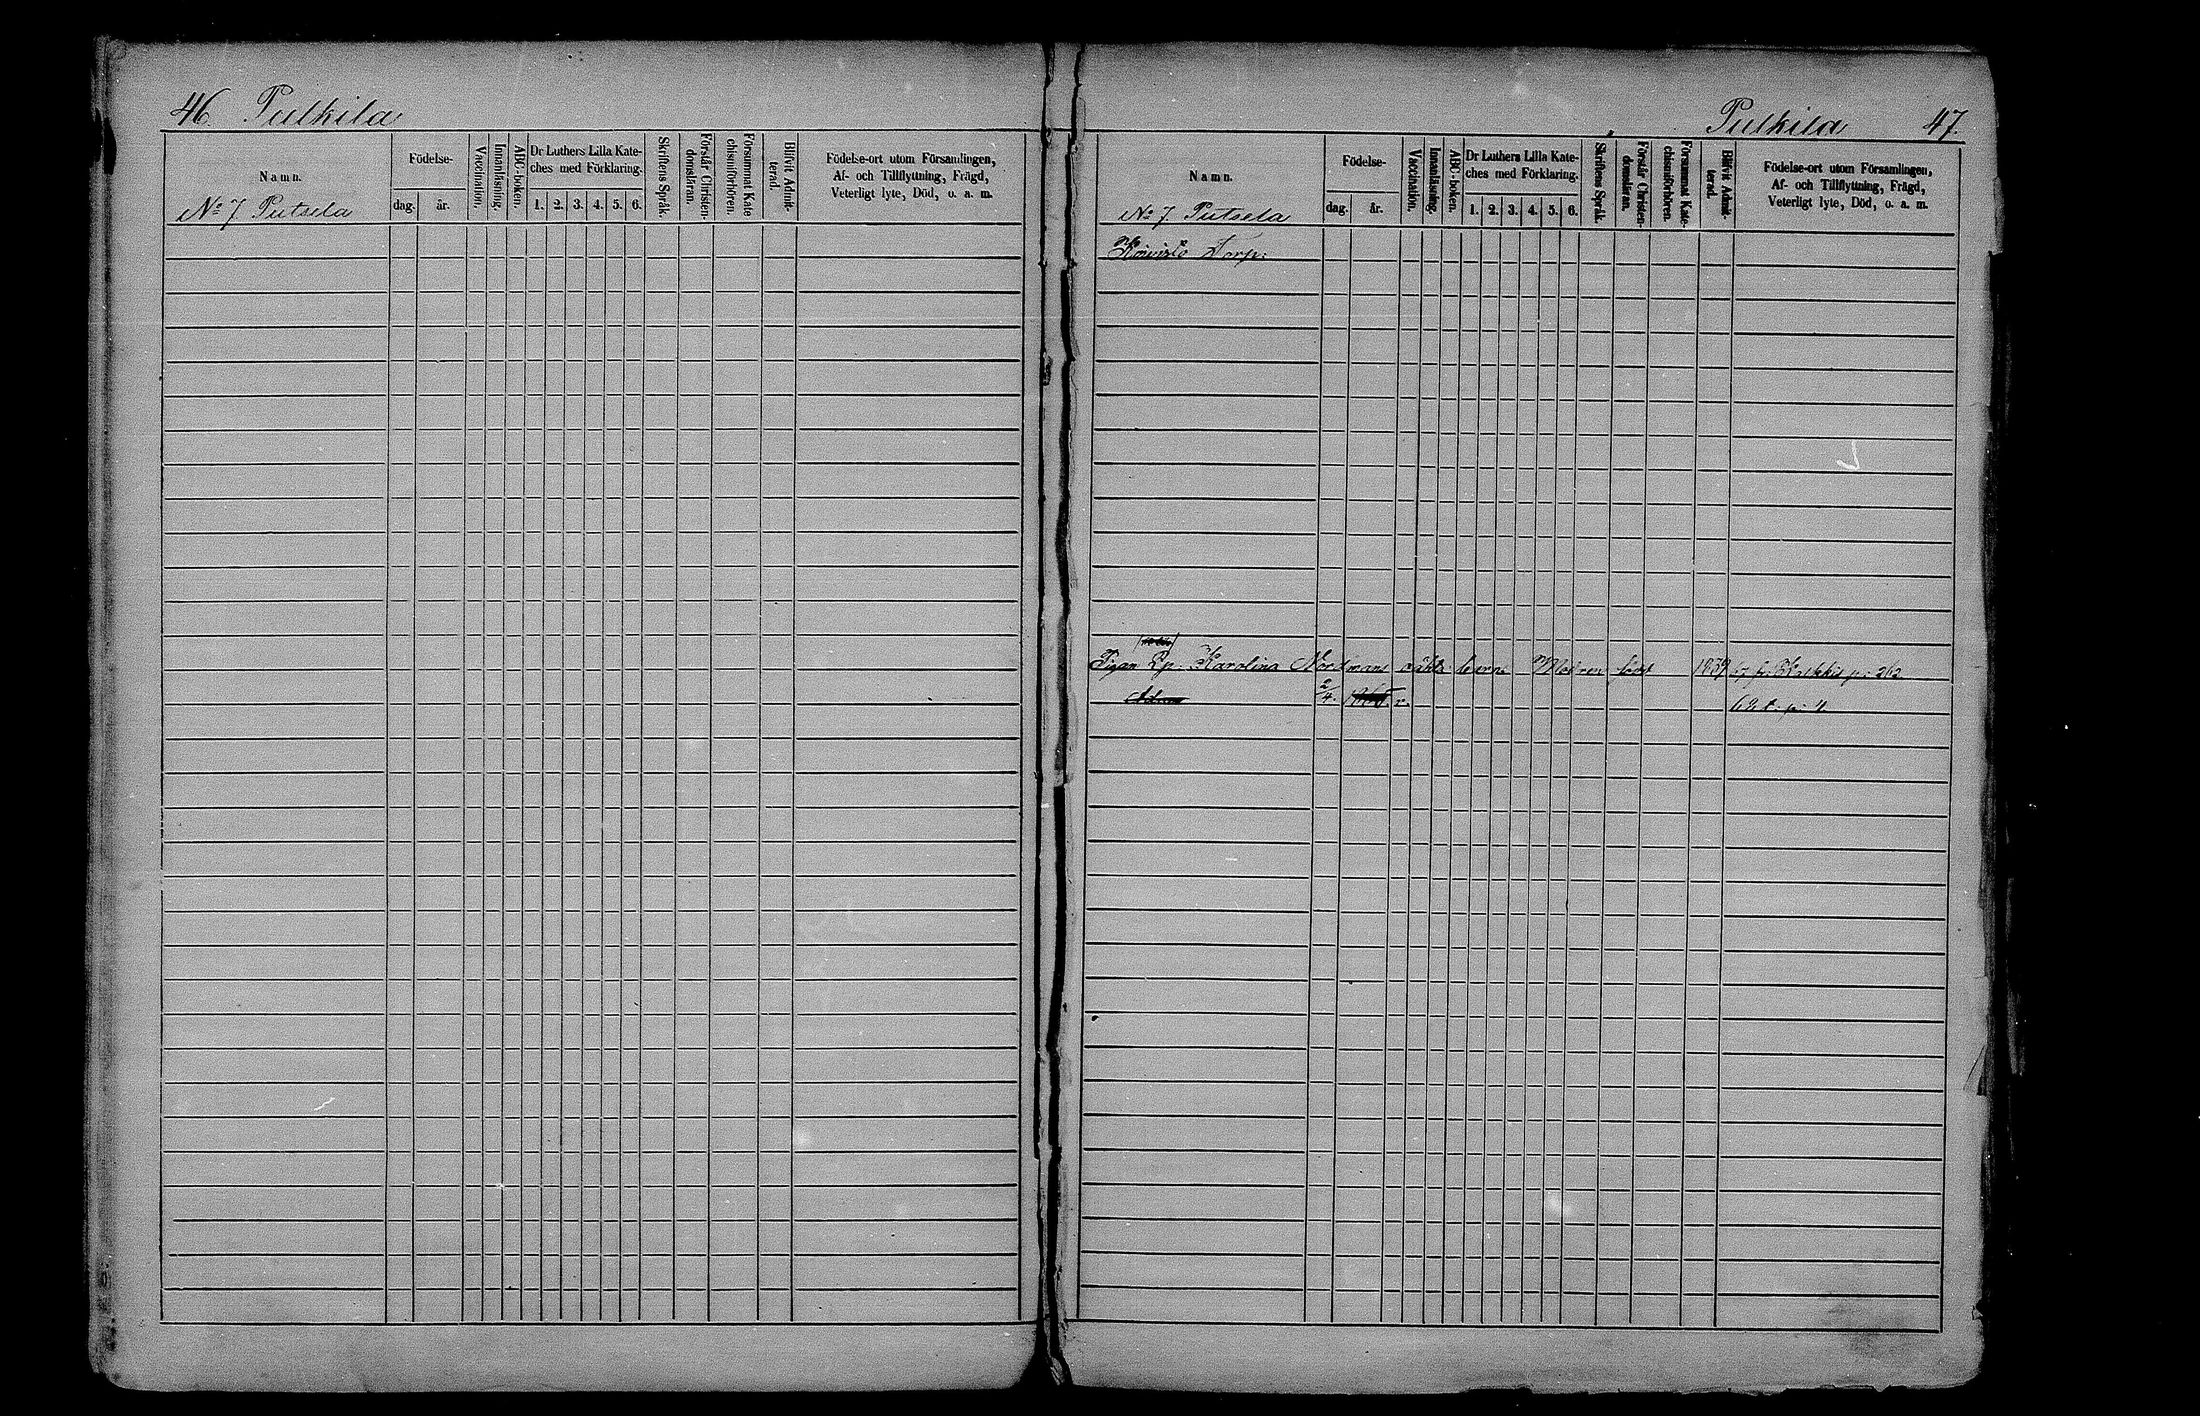 46. Pulkila
Namn.
Födelse-
dag.
år.
Vaccination.
Innanläsning.
ABC-boken.
Dr Luthers Lilla Kate-
ches med Förklaring.
1. 2. 3. 4. 5. 6.
Skriftens Språk.
Förstår Christen-
domsläran.
Försummat Kate
chismiförhören.
Blifvit Admit-
terad.
Födelse-ort utom Församlingen,
Af- och Tillflyttning, Frägd,
Veterligt lyte, Död, o. a. m.
No 7 Putsela
Pulkila 47.
Namn.
Födelse-
dag.
år.
Vaccination.
Innanläsning.
ABC-boken.
Dr Luthers Lilla Kate-
ches med Förklaring.
1. 2. 3. 4. 5. 6.
Skriftens Språk.
Förstår Christen-
domsläran.
Försummat Kate-
chismiförhören.
Blifvit Admit-
terad.
Födelse-ort utom Församlingen,
Af- och Tillflyttning, Frägd,
Veterligt lyte, Död, o. a. m.
No 7. Putsela
Koivisto Torp:
Pigan Karolina Nordmans oäkta barn Modren född 1839
2/4.